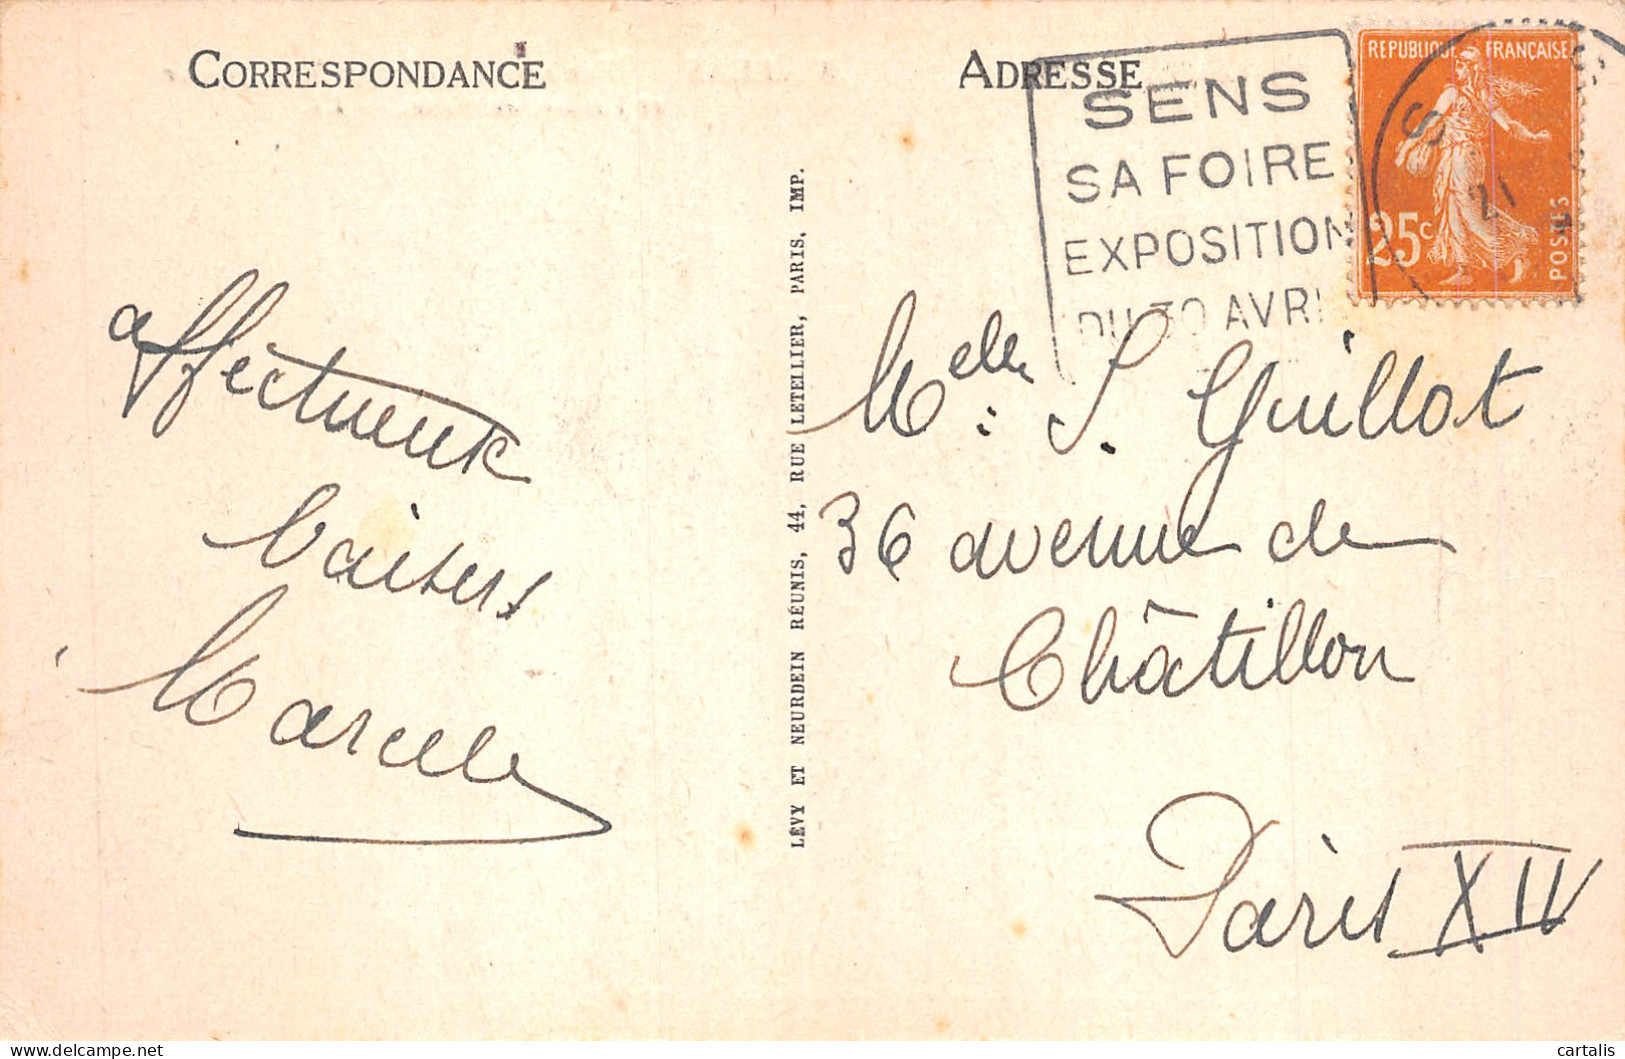 CORRESPONDANCE
ADRESSE
SENS
SA FOIRE
EXPOSITION
DU 30 AVRIL
REPUBLIQUE FRANÇAISE
25c
POSTES
S
21
affectueux
baisers
Marcelle
LÉVY ET NEURDEIN RÉUNIS, 44, RUE LETELLIER, PARIS, IMP.
Melle : S. Guillot
36 avenue de
Châtillon
Paris XIV
cartalis